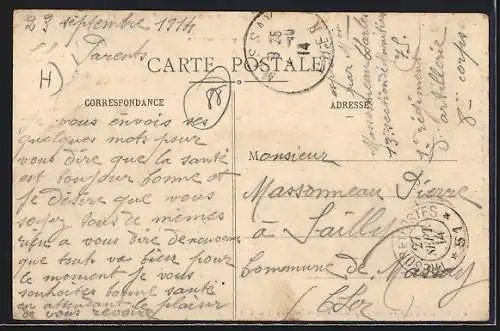 29 septembre 1914
Parents
H)
88
CARTE POSTALE
CORRESPONDANCE
ADRESSE
je vous envois ses
quelques mots pour
vous dire que la santé
est toujour bonne et
je désire que vous
soyez tous de memes
rien a vous dire de nouveau
que tout va bien pour
le moment je vous
souhaites bonne santé
en attendant le plaisir
de vous revoire
Monsieur
Massonneau Pierre
à Failly
Commune de Massay
Cher
MASSAY
CHER
14
51
par Mer
Massonneau Charles
13 section de munition
75
1e régiment
d'artillerie
8e corps